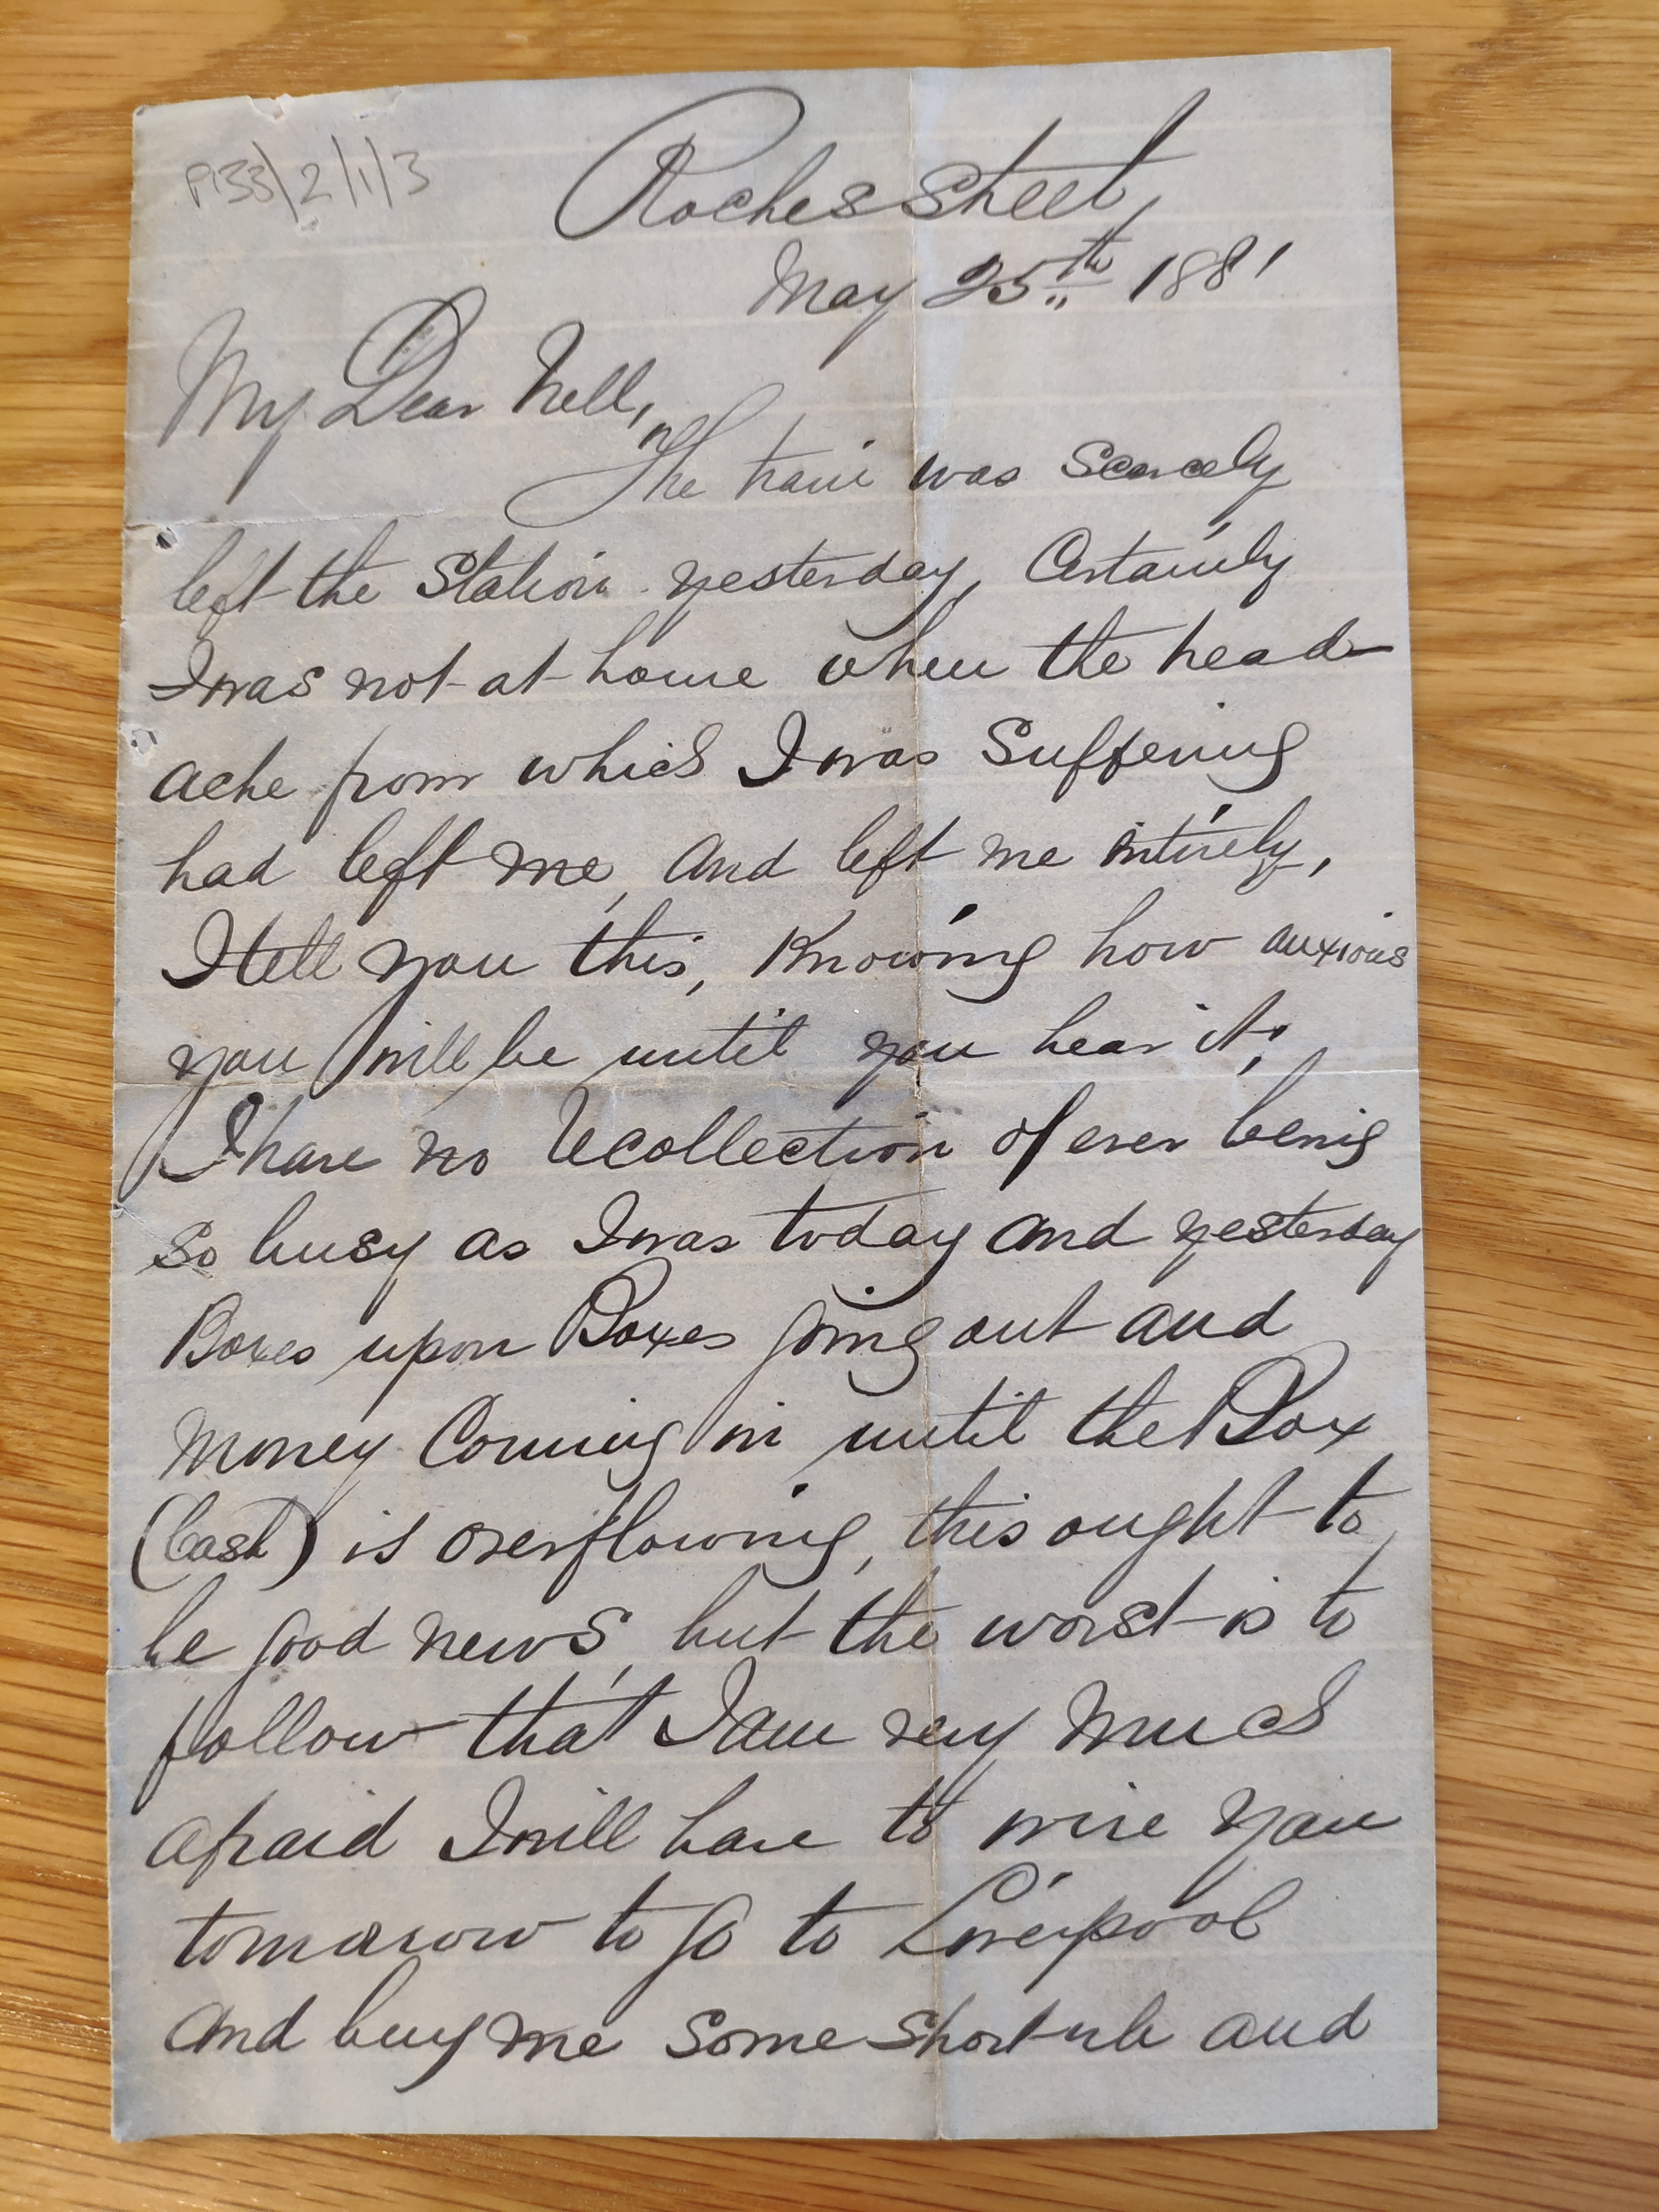 P133/2/1/3
Roches Street,
May 25th 1881
My Dear Nell,
The train was scarcely
left the Station yesterday, Certainly
I was not at home when the head-
ache from which I was suffering
had left me, and left me intirely,
I tell you this, Knowing how anxious
you will be until you hear it,
I have no recollection of ever being
so busy as I was today and yesterday
Boxes upon Boxes going out and
Money Coming in until the Box
(Cash) is overflowing, this ought to
be good news, but the worst is to
follow that I am very much
afraid I will have to wire you
tomorrow to go to Liverpool
and buy me some short rib and